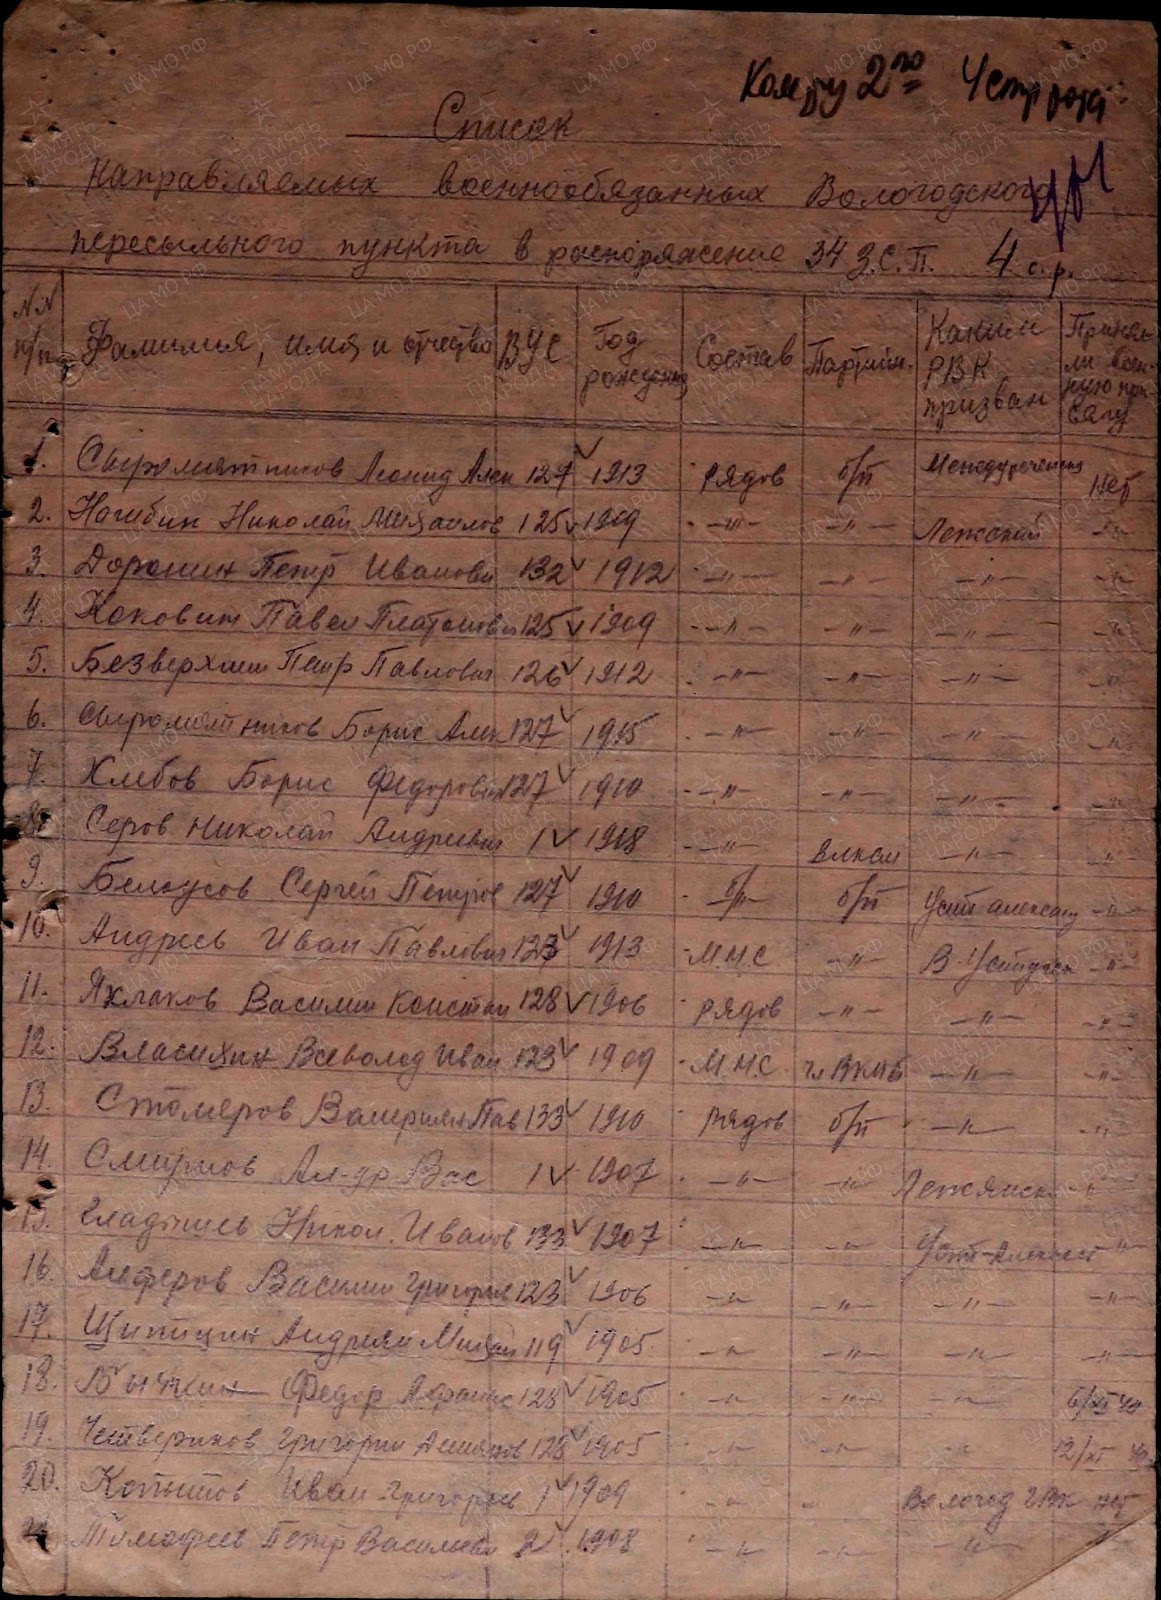 Ком-ру 2го
Список
направляемых военнообязанных Вологодского
пересыльного пункта в распоряжение 34 З.С.П. 4 с.р.
N.N п/п Фамилия, имя и отчество ВУС Год рождения Состав Партийн. Каким РВК призван Принял-ли воен-ную при-сягу
1. Сыромятников Леонид Алек 127 1913 рядов б/п Междуреченский нет
2. Нагибин Николай Михайлов 125 1909 -"- -"- Лежский -"-
3. Доронин Петр Иванови 132 1912 -"- -"- -"- -"-
4. Коковин Павел Платонович 125 1909 -"- -"- -"- -"-
5. Безверхний Петр Павлович 126 1912 -"- -"- -"- -"-
6. Сыромятников Борис Алек 127 1915 -"- -"- -"- -"-
7. Хлебов Борис Федорович 127 1910 -"- -"- -"- -"-
8. Серов Николай Андреевич 1 1918 -"- влксм -"- -"-
9. Белоусов Сергей Петров 127 1910 -"- б/п Усть александ -"-
10. Андреев Иван Павлович 123 1913 М.Н.С -"- В-Устюгск -"-
11. Яхлаков Василий Констан 128 1906 рядов -"- -"- -"-
12. Власихин Всеволод Иван 123 1909 М.Н.С чл ВКПб -"- -"-
13. Столяров Валериян Пав 133 1910 рядов б/п -"- -"-
14. Смирнов Ал-др Вас 1 1907 -"- -"- Лежанск -"-
15. Гладышев Никол. Иванов 133 1907 -"- -"- Усть-Алексеев -"-
16. Алферов Василий Григорьев 123 1906 -"- -"- -"- -"-
17. Щипицин Андриян Михай 119 1905 -"- -"- -"- -"-
18. Бычкин Федор Афанас 128 1905 -"- -"- -"- 6/XI 40
19. Четвериков Григорий 128 1905 -"- -"- -"- 12/XI
20. Копытов Иван Григорьев 1 1909 -"- -"- Вологод ГВК нет
21 Тимофеев Петр Васильеви 21 1908 -"- -"- -"-
ПАМЯТЬ НАРОДА
ЦА МО РФ